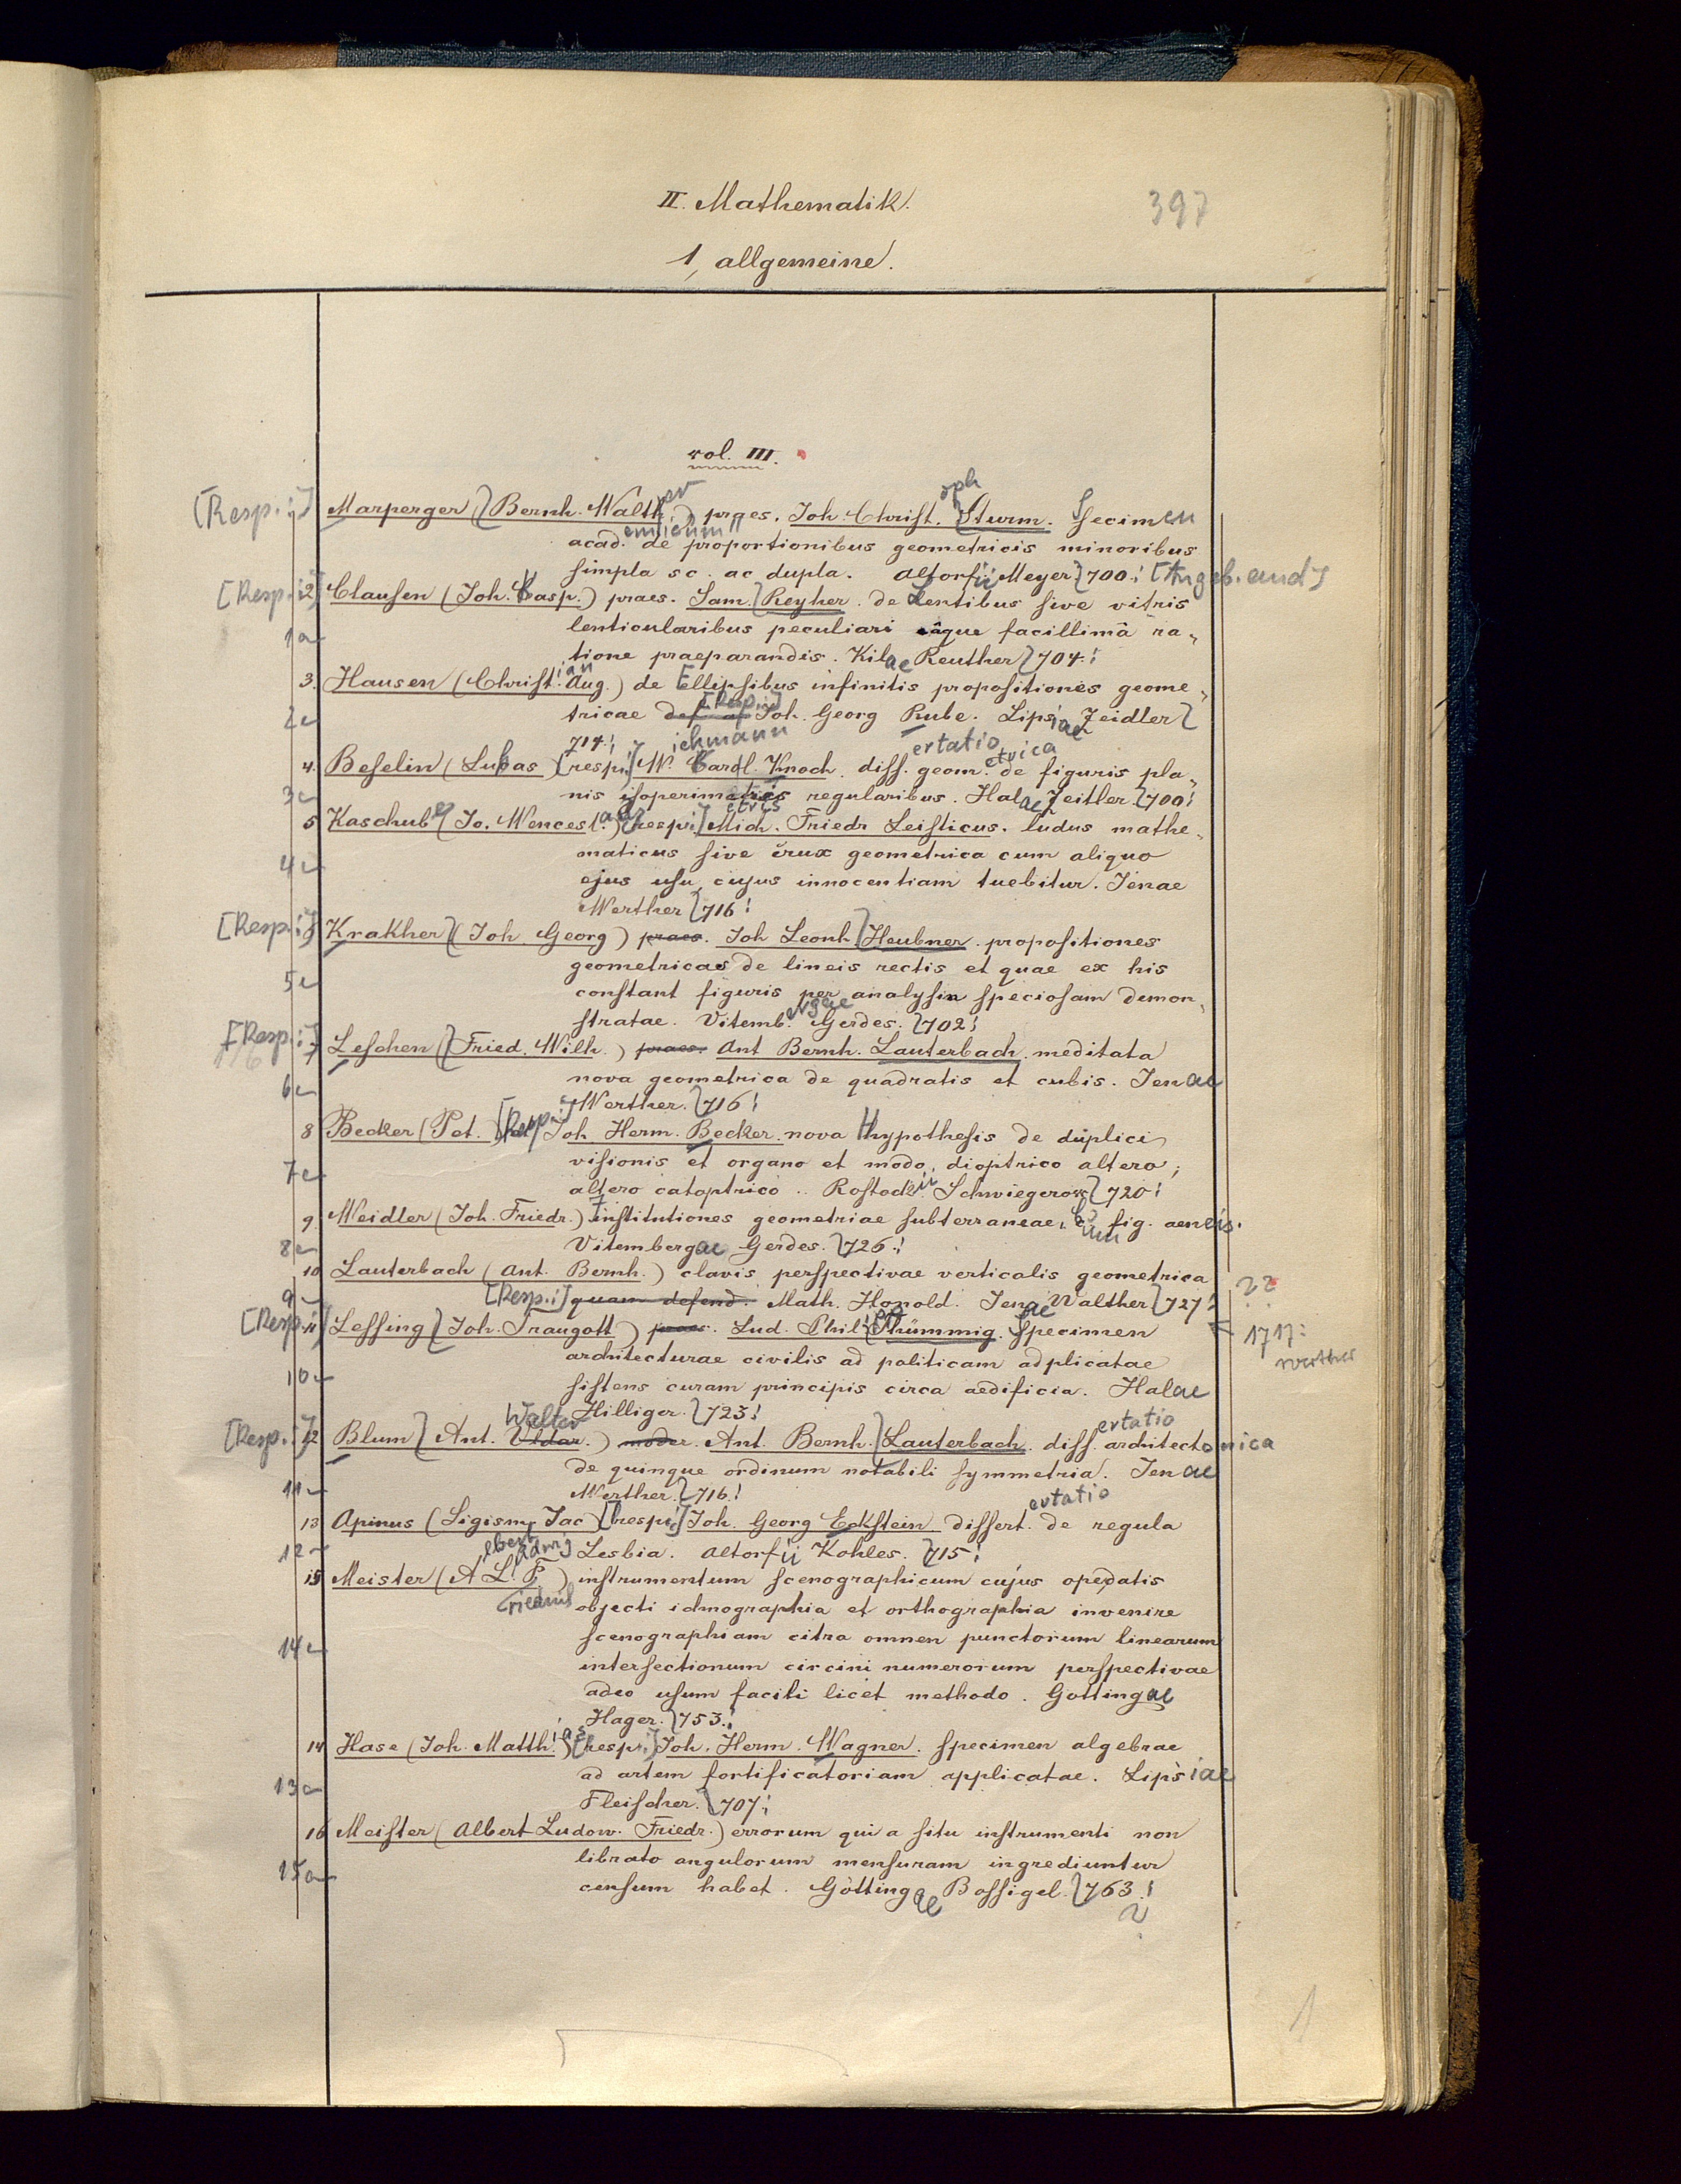 II. Mathematik.
397
1, allgemeine.
vol. III.
[Resp.:] Marperger (Bernh. Walther) praes. Joh. Christoph Sturm. Specimen
academicum de proportionibus geometricis minoribus
simpla sc. ac dupla. Altorfii Meyer 700. [Angeb. and]
[Resp.:] 2 Clausen (Joh. Casp.) praes. Sam. Reyher. de Lentibus sive vitris
1 lenticularibus peculiari eâque facillimâ ra„
tione praeparandis. Kilae Reuther 704.
3. Hausen (Christian Aug.) de Ellipsibus infinitis propositiones geome„
2 tricae [Resp.:] Joh. Georg Rube. Lipsiae Zeidler
714.
4. Beselin (Lukas) [resp.:] W. Carol. Knoch dissertatio geometrica de figuris pla„
3 nis isoperimetris regularibus. Halae Zeitler. 700
5 Kaschube (Jo. Wenceslaus) [resp:] Mich. Friedr Leisticus. ludus mathe„
4 maticus sive crux geometrica cum aliquo
ejus usu, cujus innocentiam tuebitur. Jenae
Werther 716
[Resp.:] Krakher (Joh Georg) praes. Joh Leonh. Heubner propositiones
geometricae de lineis rectis et quae ex his
5 constant figuris per analysin speciosam demon„
stratae. Vitembergae Gerdes. 702
[Resp.:] 7 Leschen (Fried. Wilh.) praes. Ant Bernh. Lauterbach meditata
6 nova geometrica de quadratis et cubis. Jenae
Werther. 716
8 Becker (Pet.) [Resp.:] Joh Herm. Becker nova Hypothesis de duplici
7 visionis et organo et modo, dioptrico altero,
altero catoptrico.. Rostockii Schwiegerow 720
9 Weidler (Joh. Friedr.) Institutiones geometriae subterraneae, cum fig. aeneis.
8 Vitembergae Gerdes. 726.
10 Lauterbach (Ant. Bernh.) clavis perspectivae verticalis geometrica ??
9 [Resp.:] quam defend. Math. Honold. Jenae Walther 727
1717: Werther
[Resp.:] 11 Lessing (Joh. Traugott) praes. Lud. Phil. Thümmig. Specimen
architecturae civilis ad politicam adplicatae
10 sistens curam principis circa aedificia. Halae
Hilliger. 723
[Resp.:] 12 Blum (Ant. Walter) moder. Ant. Bernh. Lauterbach dissertatio architectonica
de quinque ordinum notabili symmetria. Jenae
11 Werther. 716.
13 Apinus (Sigism. Jac) [resp.:] Joh. Georg Eckstein dissertatio de regula
12 Lesbia. Altorfii Kohles. 715
15 Meister (Albert Ludwig Friedrich) instrumentum scenographicum cujus ope datis
objecti ichnographia et orthographia invenire
14 scenographiam citra omnen punctorum linearum
intersectionum circini numerorum perspectivae
adeo usum facili licet methodo. Gottingae
Hager. 753.
14 Hase (Joh. Matthias) [resp.:] Joh. Herm. Wagner. specimen algebrae
13 ad artem fortificatoriam applicatae. Lipsiae
Fleischer. 707
16 Meister (Albert Ludow. Friedr.) errorum qui a situ instrumenti non
15 librato angulorum mensuram ingrediuntur
censum habet. Göttingae Bossigel. 763
?
1